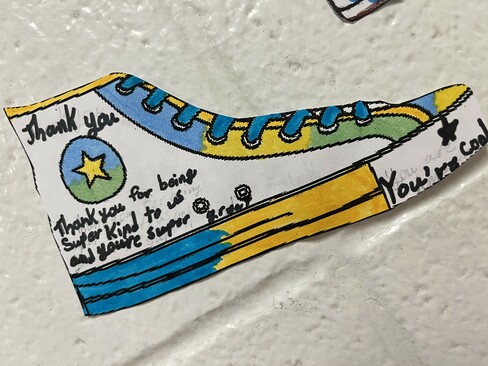 Thank you
Thank you for being
Super kind to us
and you're super great
You're cool